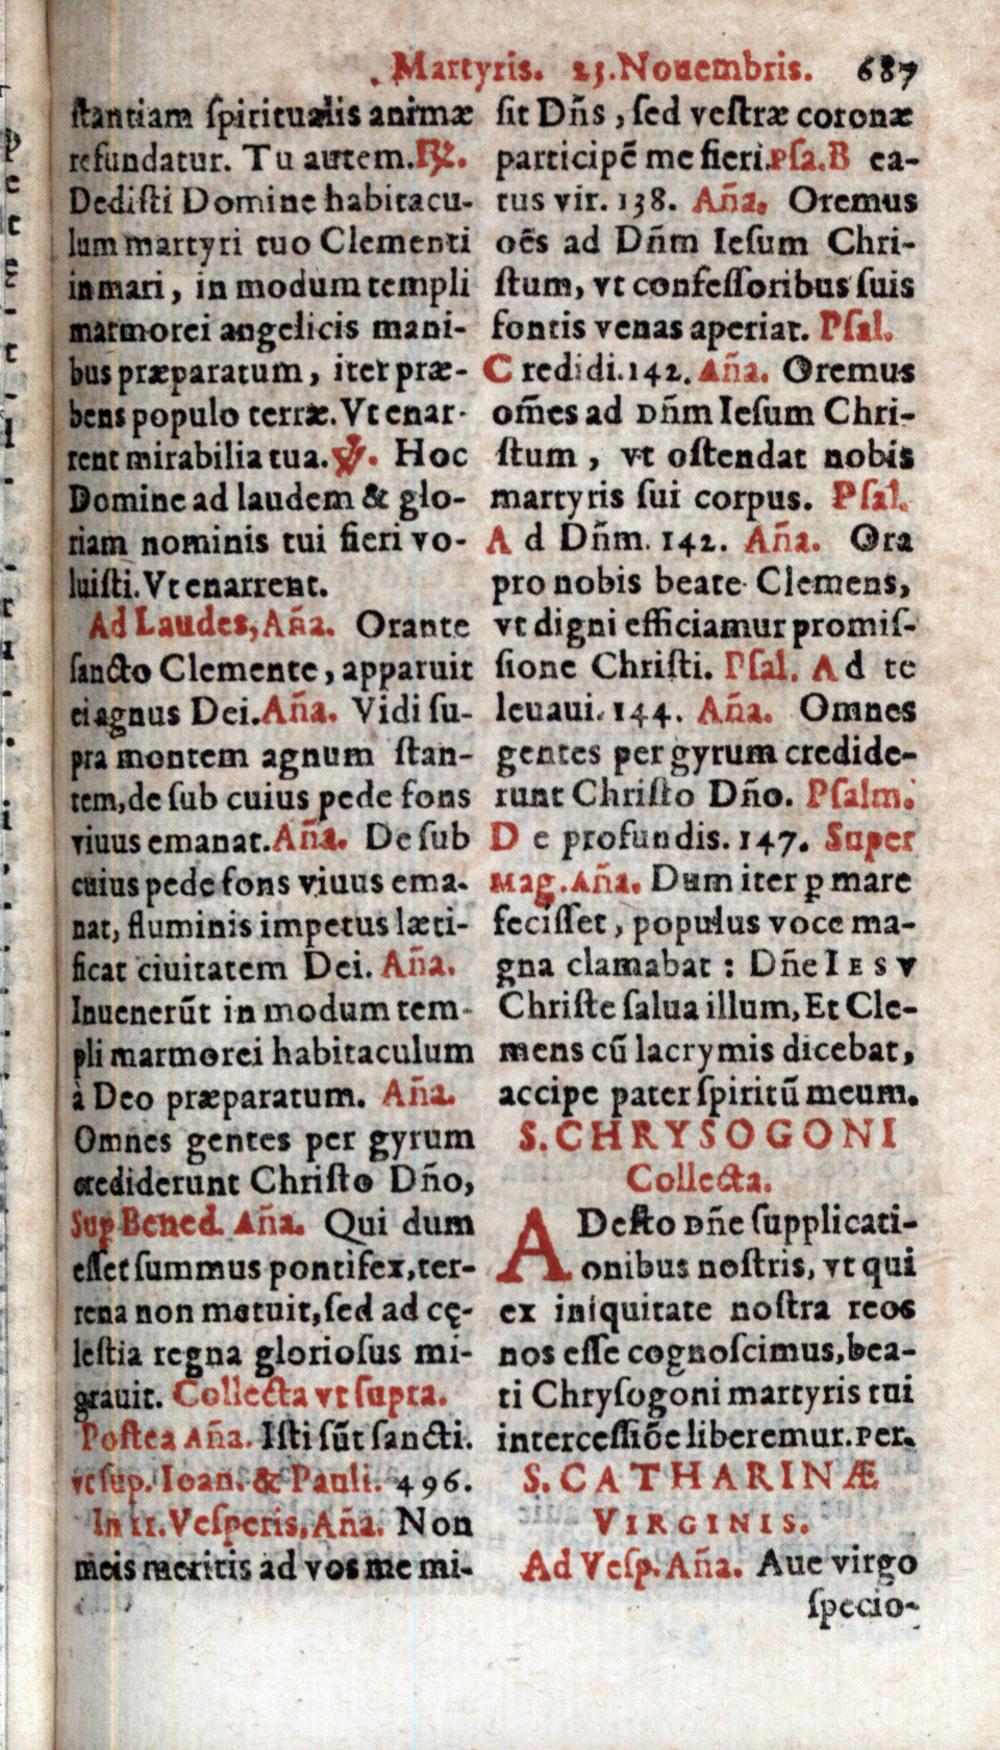 Martyris. 23. Nouembris. 687
ſtantiam ſpiritualis animæ
refundatur. Tu autem. ℟.
Dediſti Domine habitacu-
lum martyri tuo Clementi
in mari, in modum templi
marmorei angelicis mani-
bus præparatum, iter præ-
bens populo terræ. Vt enar-
rent mirabilia tua. ℣. Hoc
Domine ad laudem & glo-
riam nominis tui fieri vo-
luiſti. Vt enarrent.
Ad Laudes, Aña. Orante
ſancto Clemente, apparuit
ei agnus Dei. Aña. Vidi ſu-
pra montem agnum ſtan-
tem, de ſub cuius pede fons
viuus emanat. Aña. De ſub
cuius pede fons viuus ema-
nat, fluminis impetus læti-
ficat ciuitatem Dei. Aña.
Inuenerūt in modum tem-
pli marmorei habitaculum
à Deo præparatum. Aña.
Omnes gentes per gyrum
crediderunt Chriſto Dño,
Sup Bened. Aña. Qui dum
eſſet ſummus pontifex, ter-
rena non metuit, ſed ad cę-
leſtia regna glorioſus mi-
grauit. Collecta vt ſupra.
Poſtea Aña. Iſti ſūt ſancti.
vt ſup. Ioan. & Pauli. 496.
In II. Veſperis, Aña. Non
meis meritis ad vos me mi-
ſit Dñs, ſed veſtræ coronæ
participē me fieri. Pſa. B ea-
tus vir. 138. Aña. Oremus
oēs ad Dñm Ieſum Chri-
ſtum, vt confeſſoribus ſuis
fontis venas aperiat. Pſal.
C redidi. 142. Aña. Oremus
om̃es ad Dñm Ieſum Chri-
ſtum, vt oſtendat nobis
martyris ſui corpus. Pſal.
A d Dñm. 142. Aña. Ora
pro nobis beate Clemens,
vt digni efficiamur promiſ-
ſione Chriſti. Pſal. A d te
leuaui. 144. Aña. Omnes
gentes per gyrum credide-
runt Chriſto Dño. Pſalm.
D e profundis. 147. Super
Mag. Aña. Dum iter ꝑ mare
feciſſet, populus voce ma-
gna clamabat : Dñe IESV
Chriſte ſalua illum, Et Cle-
mens cū lacrymis dicebat,
accipe pater ſpiritū meum.
S. CHRYSOGONI
Collecta.
ADeſto Dñe ſupplicati-
onibus noſtris, vt qui
ex iniquitate noſtra reos
nos eſſe cognoſcimus, bea-
ti Chryſogoni martyris tui
interceſſiōe liberemur. Per.
S. CATHARINÆ
VIRGINIS.
Ad Veſp. Aña. Aue virgo
ſpecio-